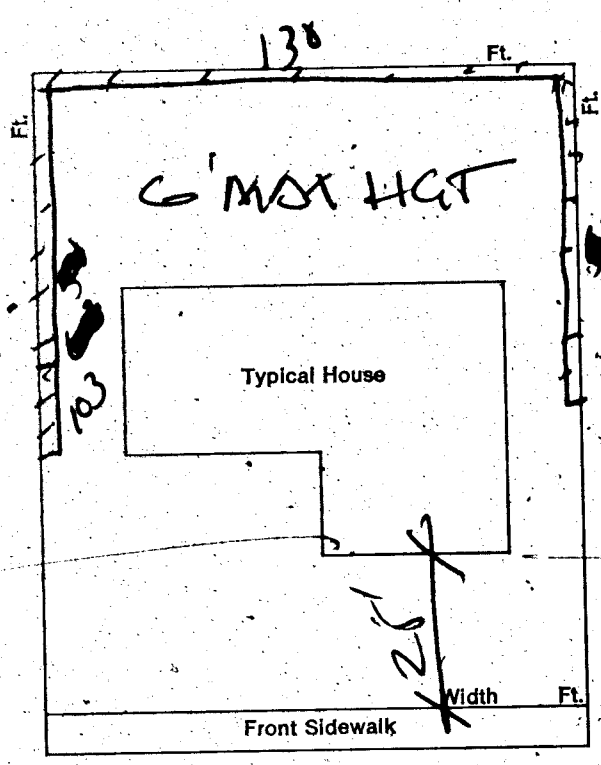 138
Ft.
Ft.
Ft.
6' MAX HGT
Typical House
103
28'
Width Ft.
Front Sidewalk